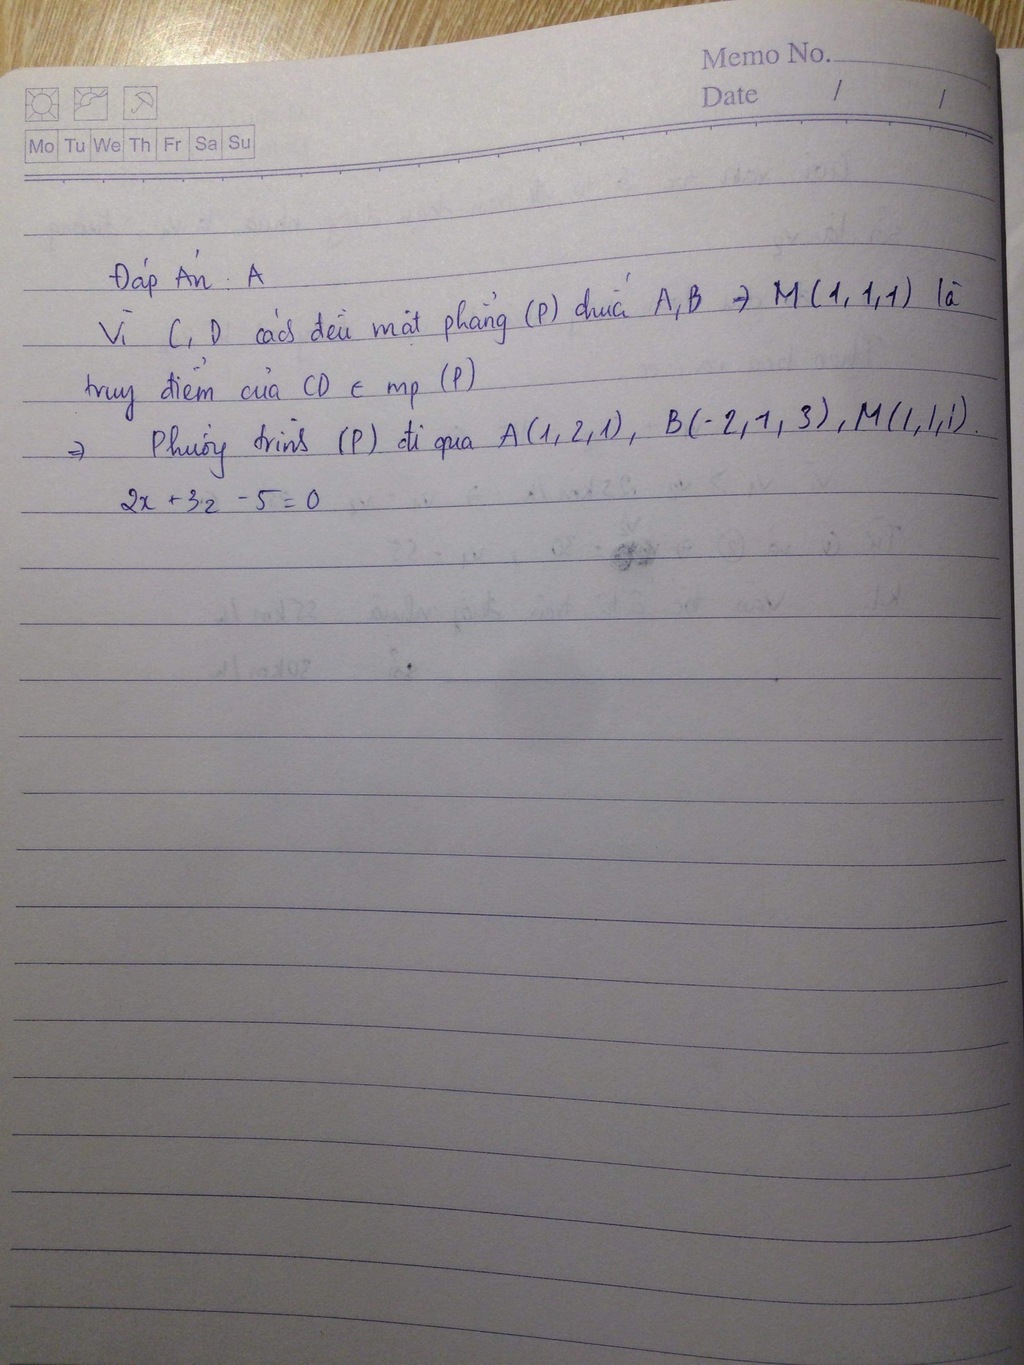 Memo No.
Date / /
Mo Tu We Th Fr Sa Su
Đáp Án : A
Vì C, D cách đều mặt phẳng (P) chứa A, B => M(1,1,1) là
truy điểm của CD ∈ mp (P)
=> Phương trình (P) đi qua A(1,2,1), B(-2,1,3), M(1,1,1).
2x + 3z - 5 = 0